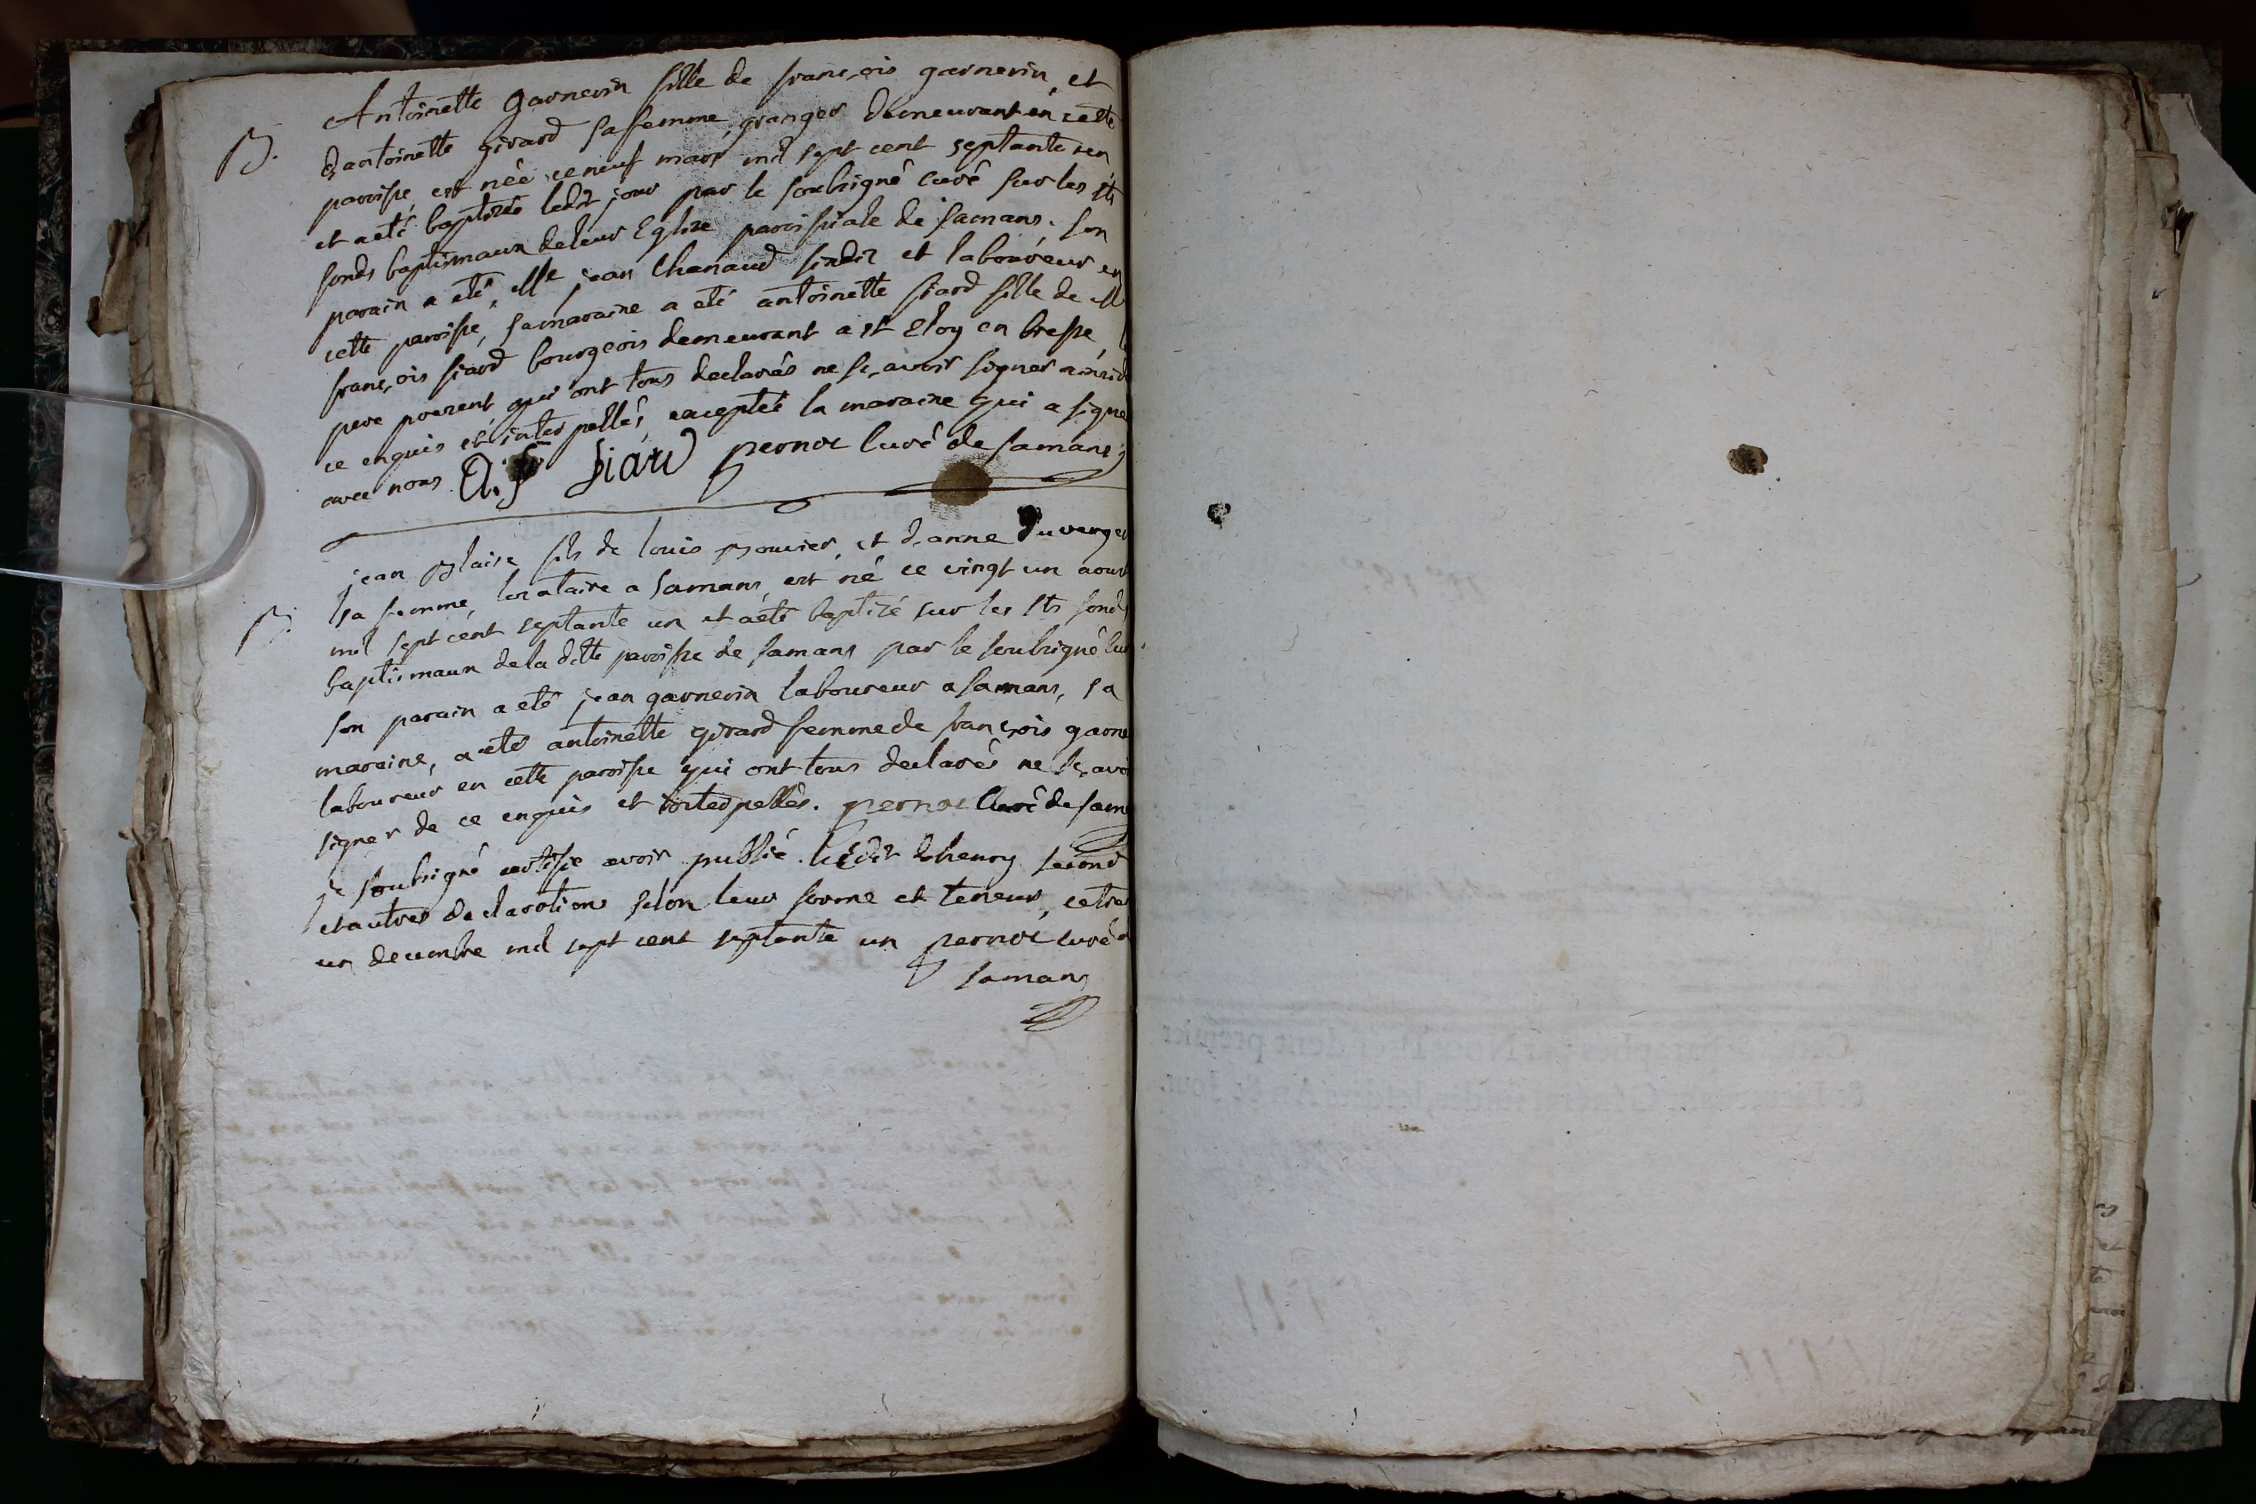 B.
Antoinette Garnerin fille de francois garnerin et
d'antoinette girard sa femme, granger demeurant en cette
paroisse, est née ce neuf mars mil sept cent septante un
et a eté baptisée ledit jour par le soubsigné curé sur les sts
fonds baptismaux de leur Eglise paroissiale de samans. son
parain a eté, Me jean Chanaud sindic et laboureur en
cette paroisse, sa maraine a eté antoinette siard fille de M
francois siard bourgeois demeurant a st Eloy en bresse,
pere present qui ont tous declarés ne scavoir signer
ce enquis et interpellés, exceptée la maraine qui a signé
avec nous A: f Siard pernot Curé de samans
B.
jean Blaise fils de louis prouvier, et d'anne Duverger
sa femme, locataire a samans, est né ce vingt un aoust
mil sept cent septante un et a eté baptizé sur les sts fonds
baptismaux de la ditte paroisse de samans par le soubsigné cur
son parain a eté jean garnerin laboureur a samans, sa
maraine, a eté antoinette girard femme de francois garne
laboureur en cette paroisse qui ont tous declarés ne scavoi
signer de ce enquis et interpellés. pernot Curé de sam
je soubsigné certifie avoir publié l'Edit d'henry second
et autres declarations selon leur forme et teneur, ce tre
un decembre mil sept cent septante un pernot curé d
samans